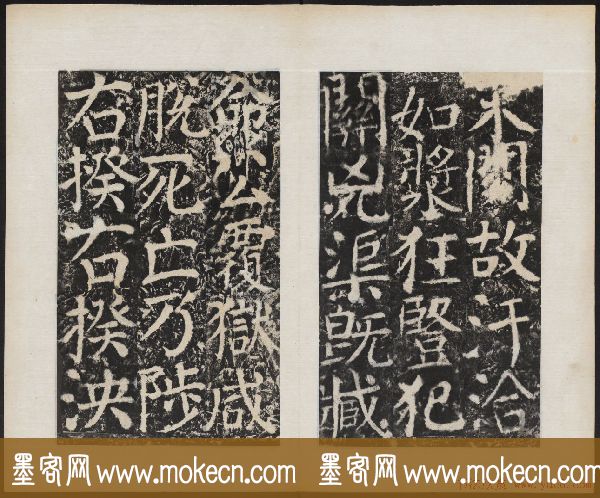 木故汗洽
如漿狂豎犯
關兇渠既臧
命公覆獄咸
脫死亡乃陟
右揆右揆泱
墨客网 www.mokecn.com
墨客网 www.mokecn.com